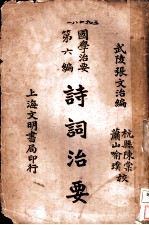 武陵張文治編
杭縣陳棠
蕭山喻璞
校
國學治要
第六編
詩詞治要
上海文明書局印行